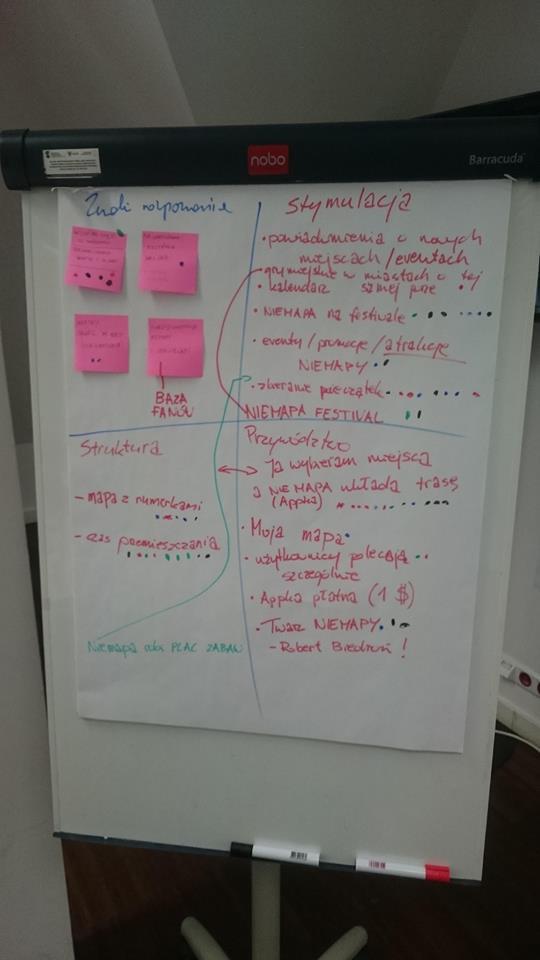 nobo
Barracuda
Znaki rozpoznania
BAZA
FANÓW
Stymulacja
• powiadomienia o nowych
miejscach/eventach
• gry miejskie w miastach o tej
• kalendarz samej porze
• NIEMAPA na festivale
• eventy/promocje/atrakcje
NIEMAPY
• zbieranie pieczątek
NIEMAPA FESTIVAL
Struktura
- mapa z numerkami
- czas przemieszczania
Niemapa PLAC ZABAW
Przywództwo
Ja wybieram miejsca
a NIEMAPA układa trasę
(Appka)
• Moja mapa
• użytkownicy polecają
szczególnie
• Appka płatna (1 $)
• Twarz NIEMAPY
- Robert Biedroń!
nobo